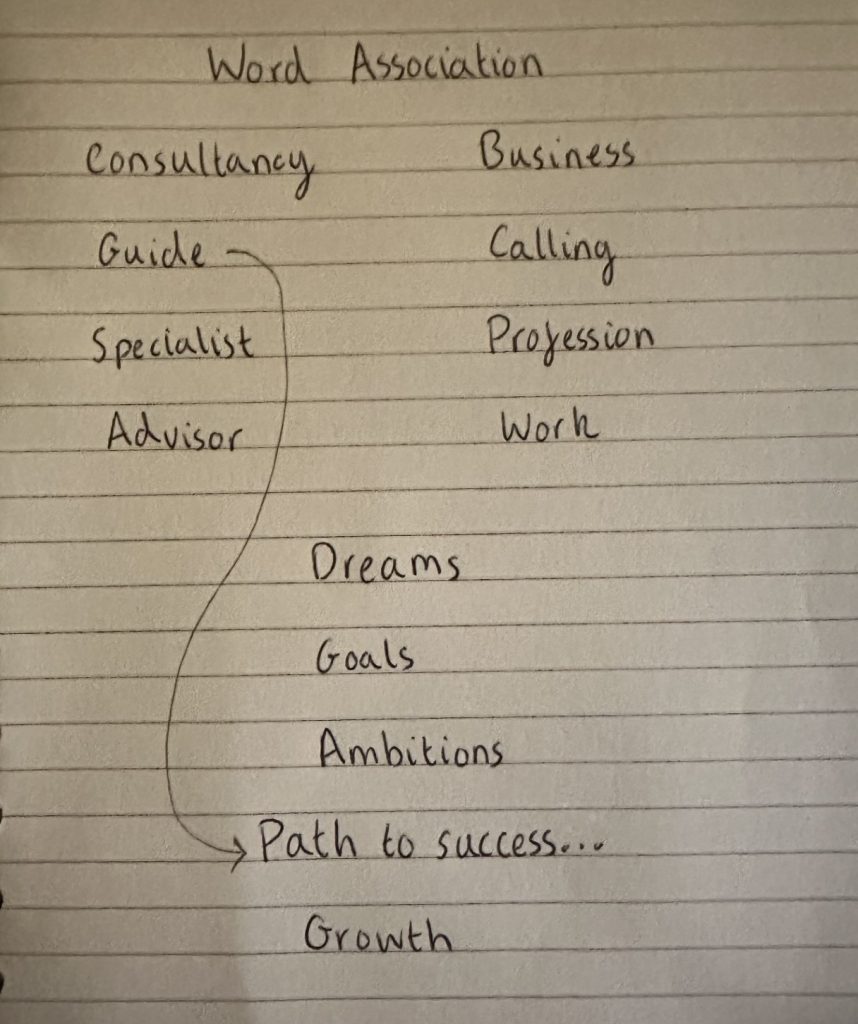 Word Association
Consultancy Business
Guide Calling
Specialist Profession
Advisor Work
Dreams
Goals
Ambitions
Path to success...
Growth